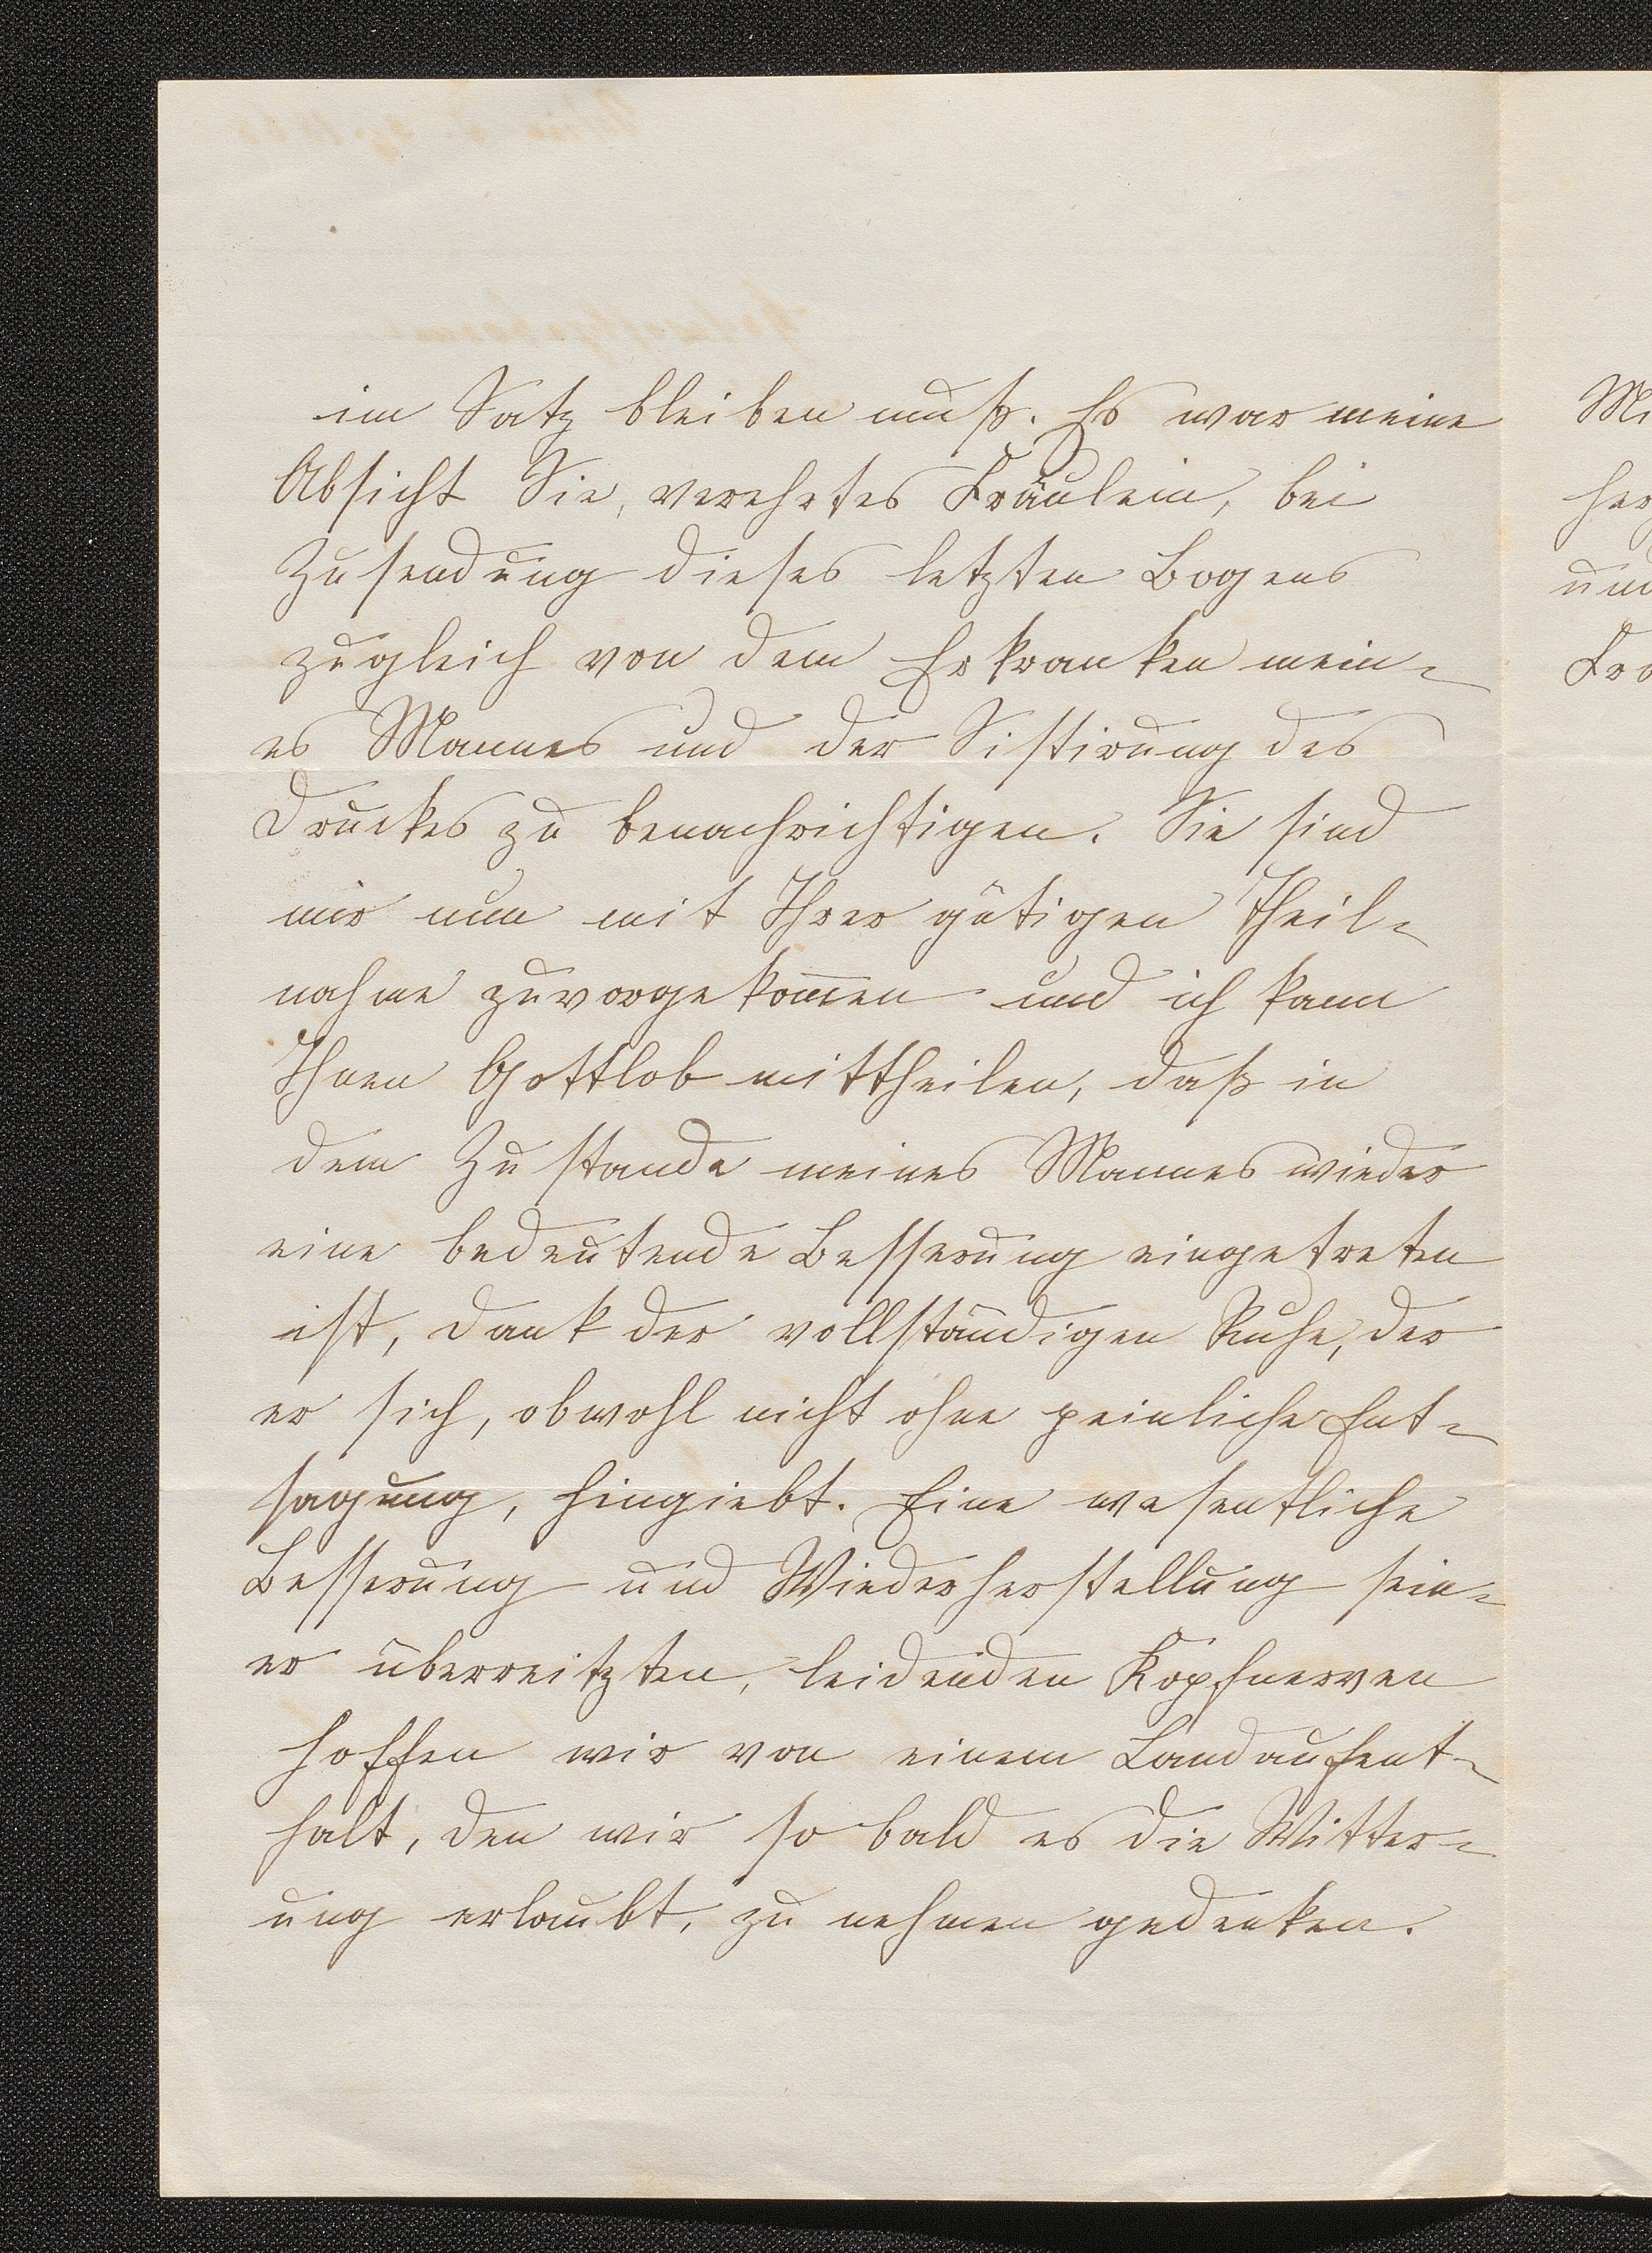 im Satz bleiben muß. Es war meine
Absicht Sie, verehrtes Fräulein, bei
Zusendung dieses letzten Bogens
zugleich von dem Erkranken mein-
es Mannes und der Sistirung des
Druckes zu benachrichtigen. Sie sind
mir nun mit Ihrer gütigen Theil-
nahme zuvorgekom̅en und ich kann
Ihnen Gottlob mittheilen, daß in
dem Zustande meines Mannes wieder
eine bedeutende Besserung eingetreten
ist, Dank der vollständigen Ruhe, der
er sich, obwohl nicht ohne peinliche Ent-
sagung, hingiebt. Eine wesentliche
Besserung und Wiederherstellung sein-
er überreitzten, leidenden Kopfnerven
hoffen wir von einem Landaufent-
halt, den wir so bald es die Witter-
ung erlaubt, zu nehmen gedenken.
und